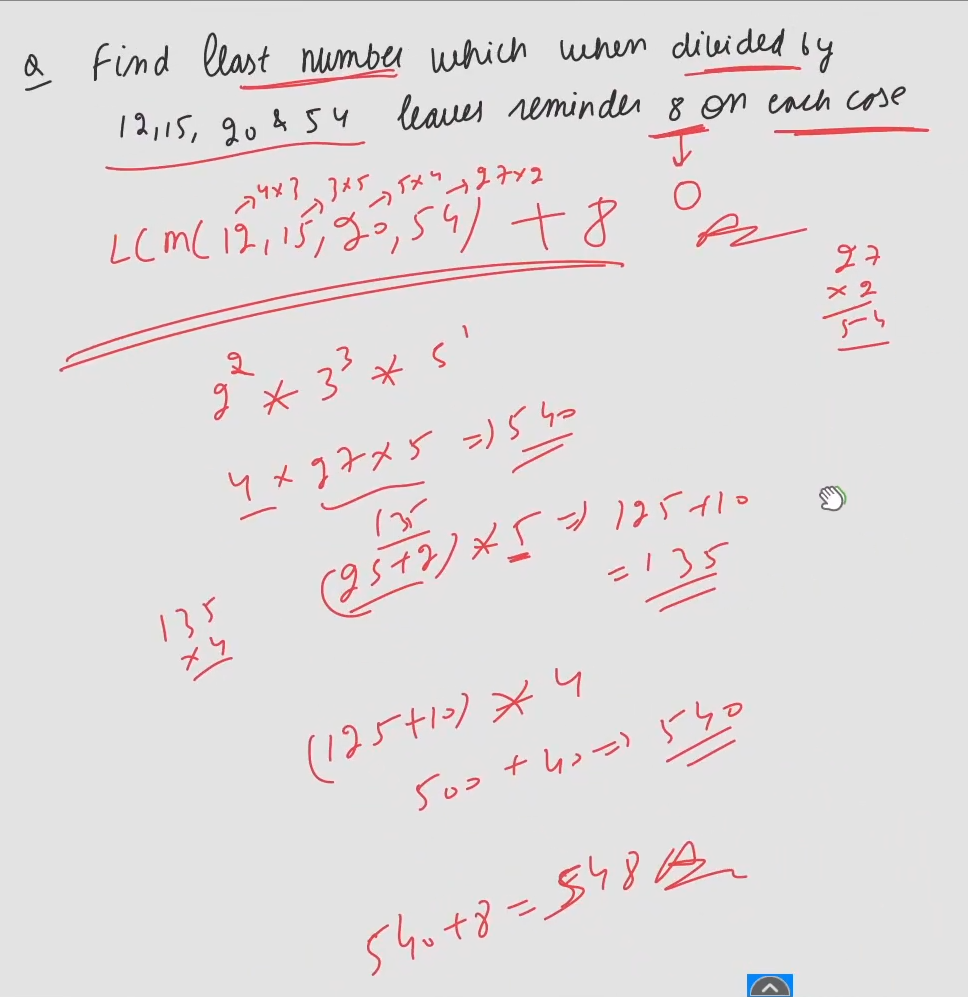 Q Find least number which when divided by
12,15, 20 & 54 leaves reminder 8 on each case
→4x3 →3x5 →5x4 →27x2
↓
0
LCM(12,15,20,54) + 8
27
x2
54
2² * 3³ * 5¹
4 x 27 x 5 => 540
135
(25+2) * 5 => 125+10
= 135
135
x4
(125+10) * 4
500 + 40 => 540
540+8 = 548 A